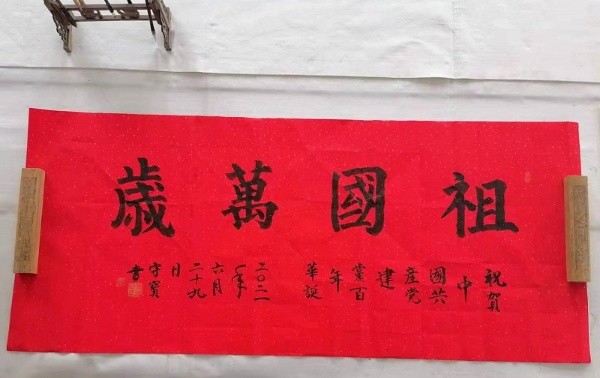 祖國萬歲
祝賀
中
國共
産党
建
黨百
年
華誕
二〇二一
年
六月
二十九
日
守寳
書